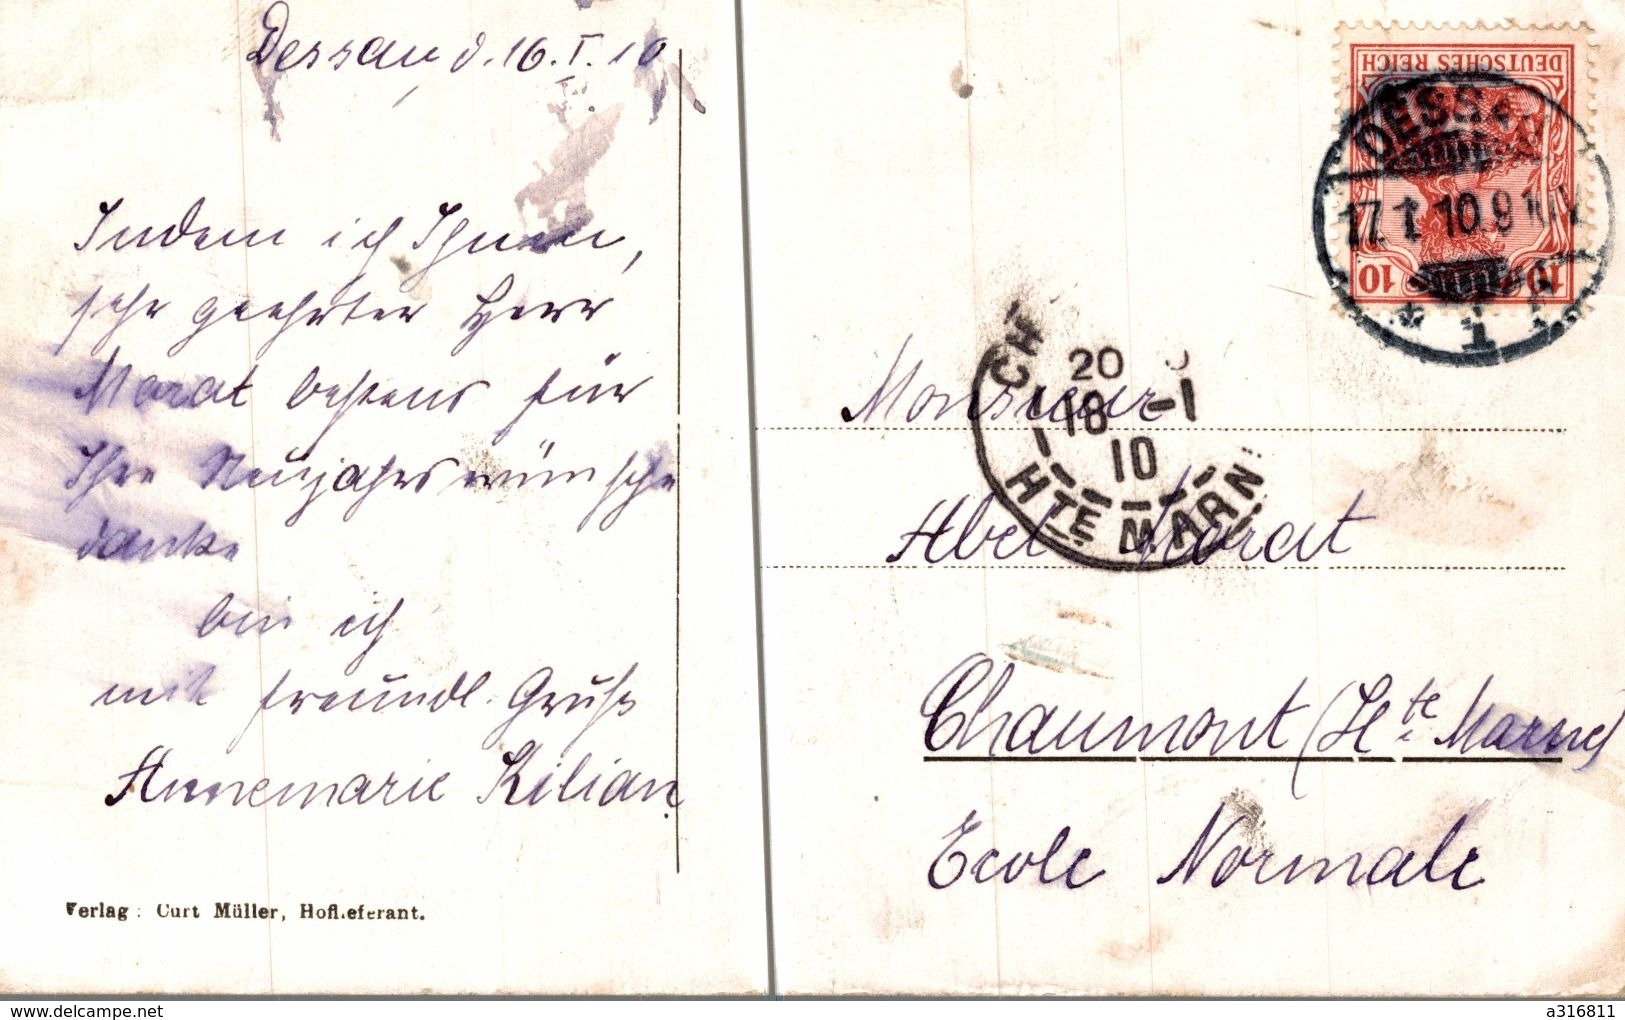 Dessau d. 16. I. 10
Indem ich Ihnen,
sehr geehrter Herr
Marat bestens für
Ihre Neujahrswünsche
danke
bin ich
mit freundl. Gruß
Annemarie Kilian.
Verlag: Curt Müller, Hoflieferant.
DEUTSCHES REICH
10 10
DESSAU
17.1.10.9-10V.
* 1
CH
20
18 -1
10
HTE MARN
Monsieur
Abel Marat
Chaumont (Hte. Marne)
Ecole Normale
www.delcampe.net
a316811